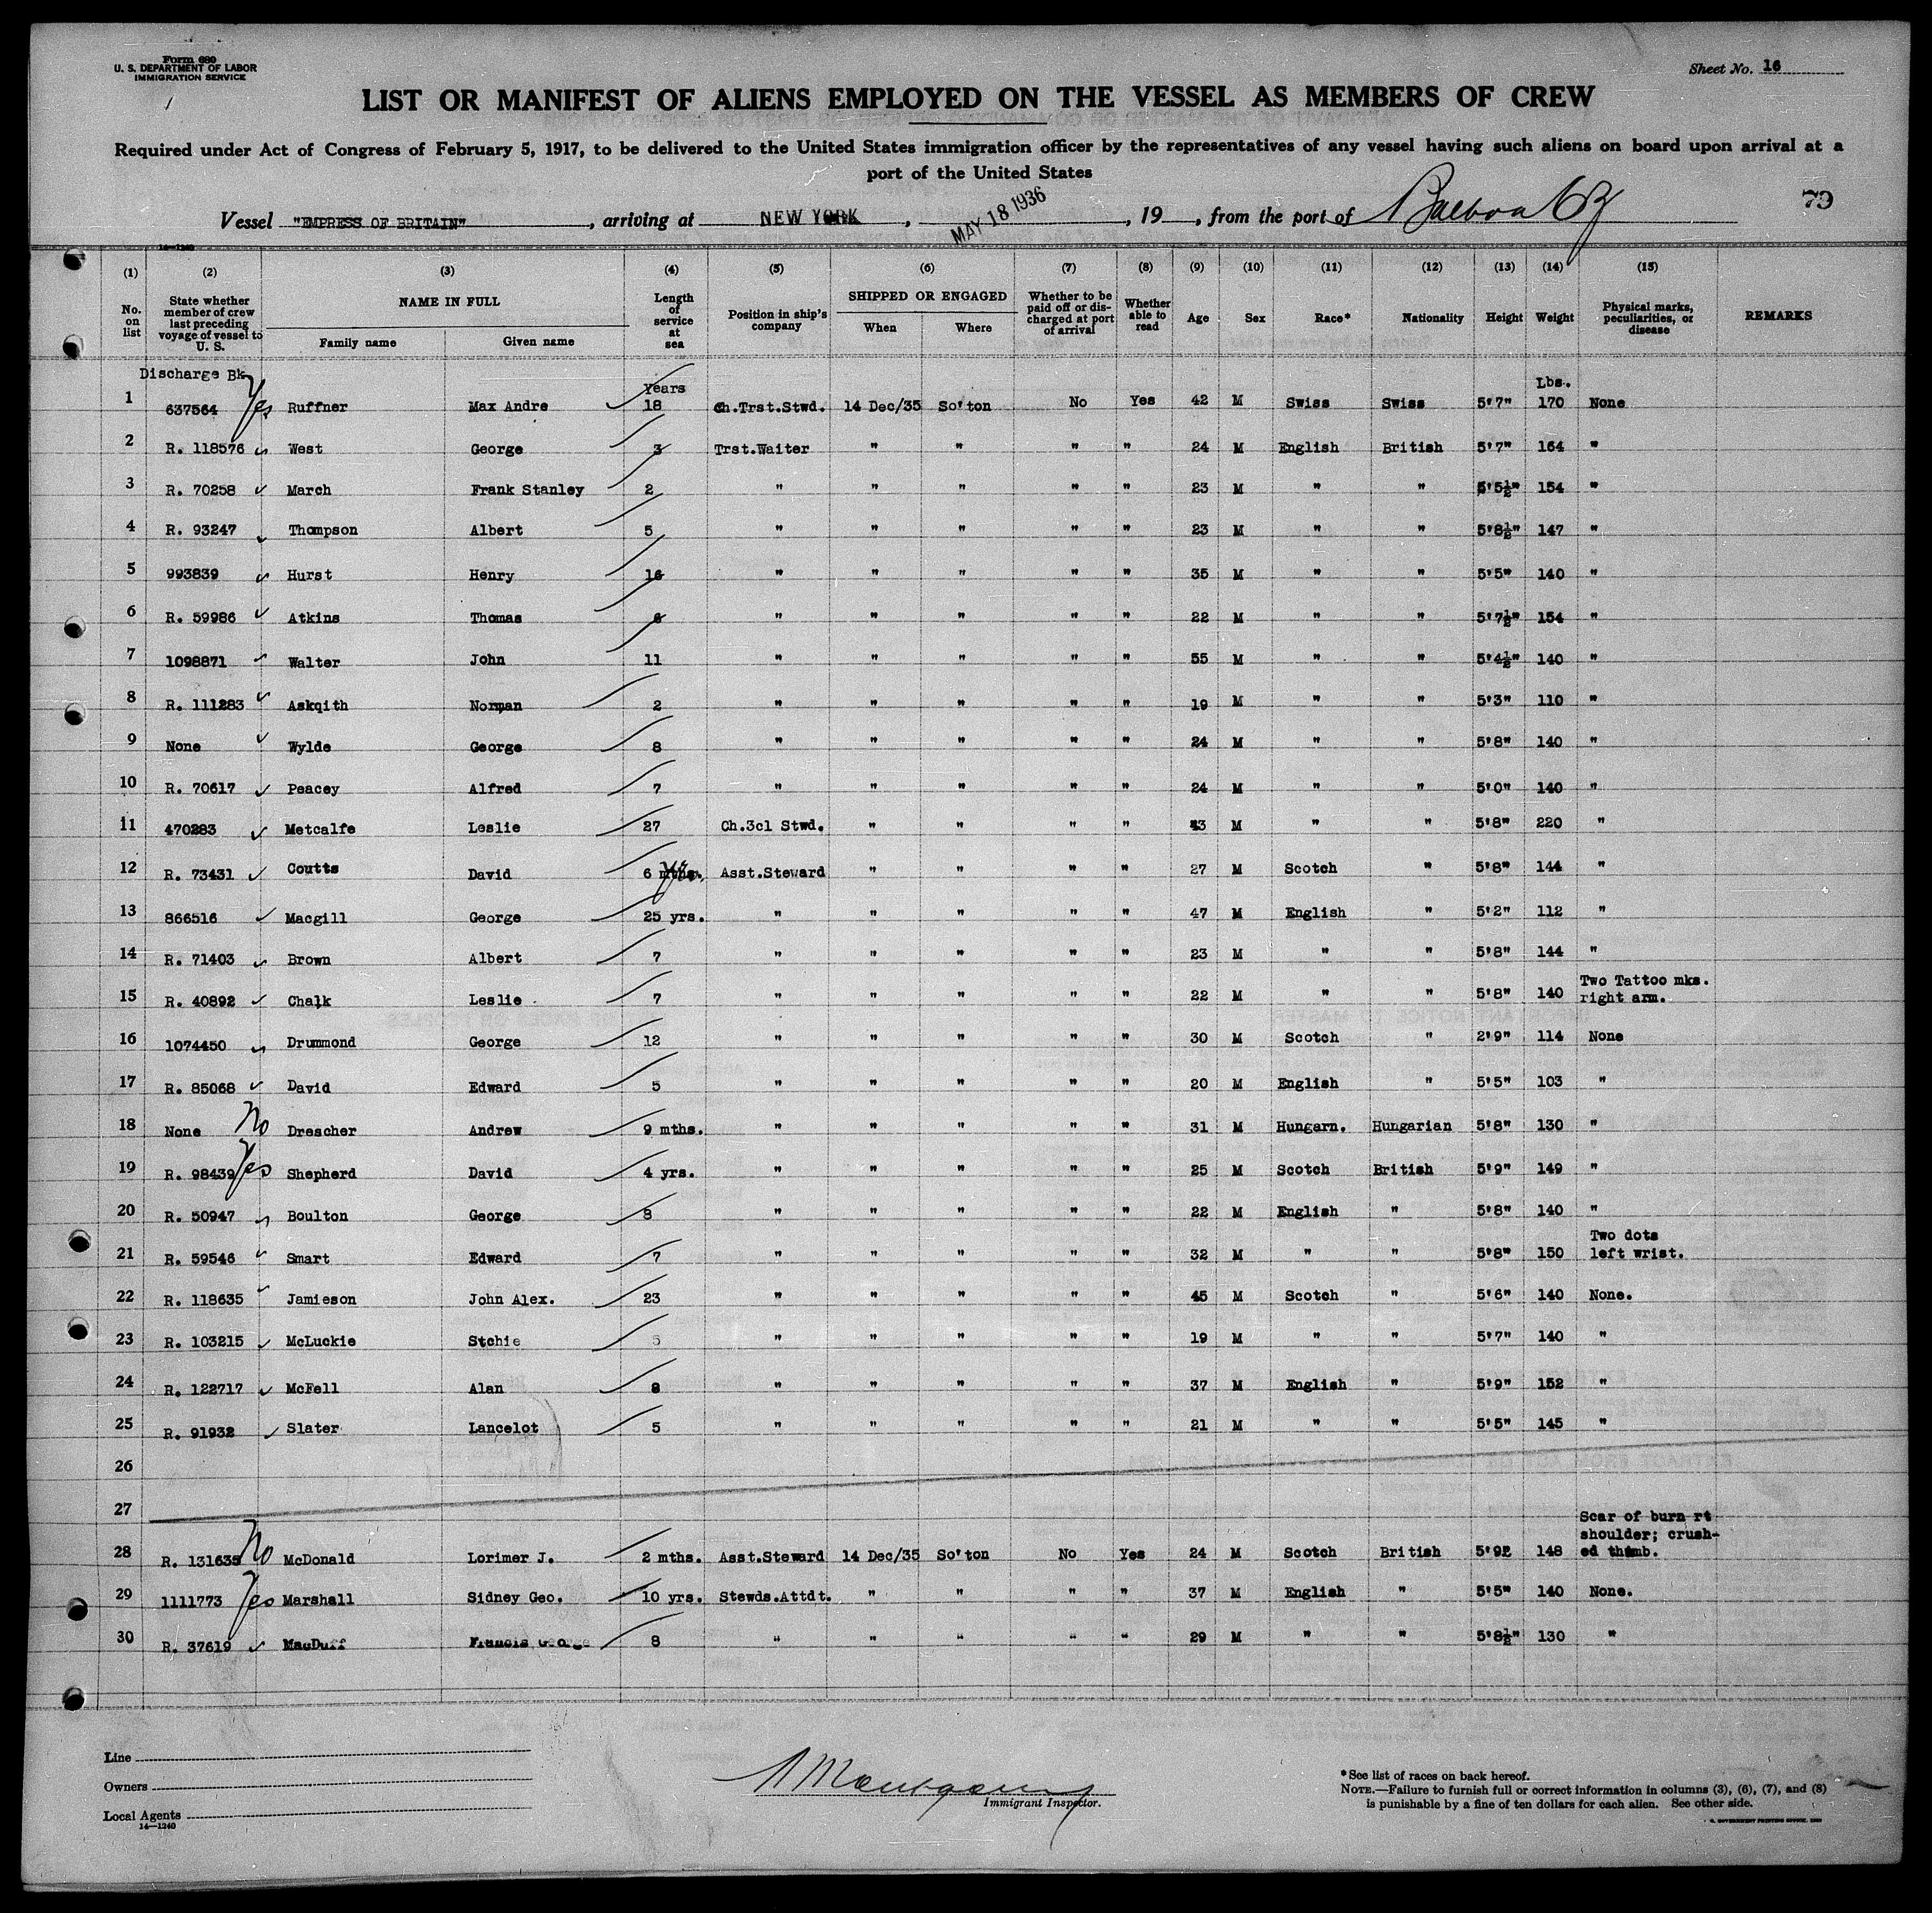 Form 680
U. S. DEPARTMENT OF LABOR
IMMIGRATION SERVICE
Sheet No. 16
LIST OR MANIFEST OF ALIENS EMPLOYED ON THE VESSEL AS MEMBERS OF CREW
Required under Act of Congress of February 5, 1917, to be delivered to the United States immigration officer by the representatives of any vessel having such aliens on board upon arrival at a
port of the United States
79
Vessel "EMPRESS OF BRITAIN", arriving at NEW YORK, MAY 18 1936, 19 , from the port of Balboa CZ
14-1240
(1) (2) (3) (4) (5) (6) (7) (8) (9) (10) (11) (12) (13) (14) (15)
No. on list State whether member of crew last preceding voyage of vessel to U. S. NAME IN FULL Family name Given name Length of service at sea Position in ship's company SHIPPED OR ENGAGED When Where Whether to be paid off or discharged at port of arrival Whether able to read Age Sex Race* Nationality Height Weight Physical marks, peculiarities, or disease REMARKS
Discharge Bk Years Lbs.
1 637564 Yes Ruffner Max Andre 18 Ch.Trst.Stwd. 14 Dec/35 So'ton No Yes 42 M Swiss Swiss 5'7" 170 None
2 R. 118576 West George 3 Trst.Waiter " " " " 24 M English British 5'7" 164 "
3 R. 70258 March Frank Stanley 2 " " " " " 23 M " " 5'5½" 154 "
4 R. 93247 Thompson Albert 5 " " " " " 23 M " " 5'8½" 147 "
5 993839 Hurst Henry 16 " " " " " 35 M " " 5'5" 140 "
6 R. 59986 Atkins Thomas 6 " " " " " 22 M " " 5'7½" 154 "
7 1098871 Walter John 11 " " " " " 55 M " " 5'4½" 140 "
8 R. 111283 Askqith Norman 2 " " " " " 19 M " " 5'3" 110 "
9 None Wylde George 8 " " " " " 24 M " " 5'8" 140 "
10 R. 70617 Peacey Alfred 7 " " " " " 24 M " " 5'0" 140 "
11 470283 Metcalfe Leslie 27 Ch.3cl Stwd. " " " " 43 M " " 5'8" 220 "
12 R. 73431 Coutts David 6 mths. yrs. Asst.Steward " " " " 27 M Scotch " 5'8" 144 "
13 866516 Macgill George 25 yrs. " " " " " 47 M English " 5'2" 112 "
14 R. 71403 Brown Albert 7 " " " " " 23 M " " 5'8" 144 "
15 R. 40892 Chalk Leslie 7 " " " " " 22 M " " 5'8" 140 Two Tattoo mks. right arm.
16 1074450 Drummond George 12 " " " " " 30 M Scotch " 2'9" 114 None
17 R. 85068 David Edward 5 " " " " " 20 M English " 5'5" 103 "
18 None No Drescher Andrew 9 mths. " " " " " 31 M Hungarn. Hungarian 5'8" 130 "
19 R. 98439 Yes Shepherd David 4 yrs. " " " " " 25 M Scotch British 5'9" 149 "
20 R. 50947 Boulton George 8 " " " " " 22 M English " 5'8" 140 "
21 R. 59546 Smart Edward 7 " " " " " 32 M " " 5'8" 150 Two dots left wrist.
22 R. 118635 Jamieson John Alex. 23 " " " " " 45 M Scotch " 5'6" 140 None.
23 R. 103215 McLuckie Stchie 5 " " " " " 19 M " " 5'7" 140 "
24 R. 122717 McFell Alan 8 " " " " " 37 M English " 5'9" 152 "
25 R. 91932 Slater Lancelot 5 " " " " " 21 M " " 5'5" 145 "
26
27
28 R. 131635 No McDonald Lorimer J. 2 mths. Asst.Steward 14 Dec/35 So'ton No Yes 24 M Scotch British 5'9 148 Scar of burn rt shoulder; crush- ed thumb.
29 1111773 Yes Marshall Sidney Geo. 10 yrs. Stewds.Attdt. " " " " 37 M English " 5'5" 140 None.
30 R. 37619 MacDuff Francis George 8 " " " " " 29 M " " 5'8½" 130 "
Line
Owners
Local Agents
14-1240
Immigrant Inspector.
*See list of races on back hereof.
NOTE.—Failure to furnish full or correct information in columns (3), (6), (7), and (8)
is punishable by a fine of ten dollars for each alien. See other side.